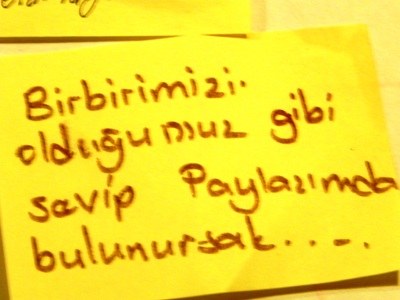 Birbirimizi.
olduğumuz gibi
sevip Paylaşımda
bulunursak.....